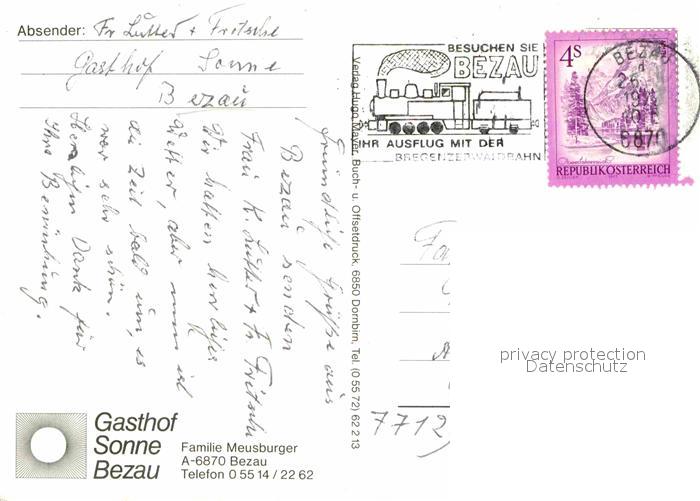 Absender: Fr Lutter + Fritsche
Gasthof Sonne
Bezau
BESUCHEN SIE
BEZAU
IHR AUSFLUG MIT DER
BREGENZERWALDBAHN
BEZAU
6870
4S
REPUBLIK ÖSTERREICH
Freundliche Grüße aus
Bezau senden
Frau K. Lutter + Fr Fritsche
Wir hatten herrliches
Wetter, aber nun ist
die Zeit bald um, es
war sehr schön.
Herzlichen Dank für
Ihre Bemühung.
Verlag Hugo Mayer, Buch- u. Offsetdruck, 6850 Dornbirn, Tel. (0 55 72) 62 2 13
7712
privacy protection
Datenschutz
Gasthof
Sonne
Bezau
Familie Meusburger
A-6870 Bezau
Telefon 0 55 14 / 22 62